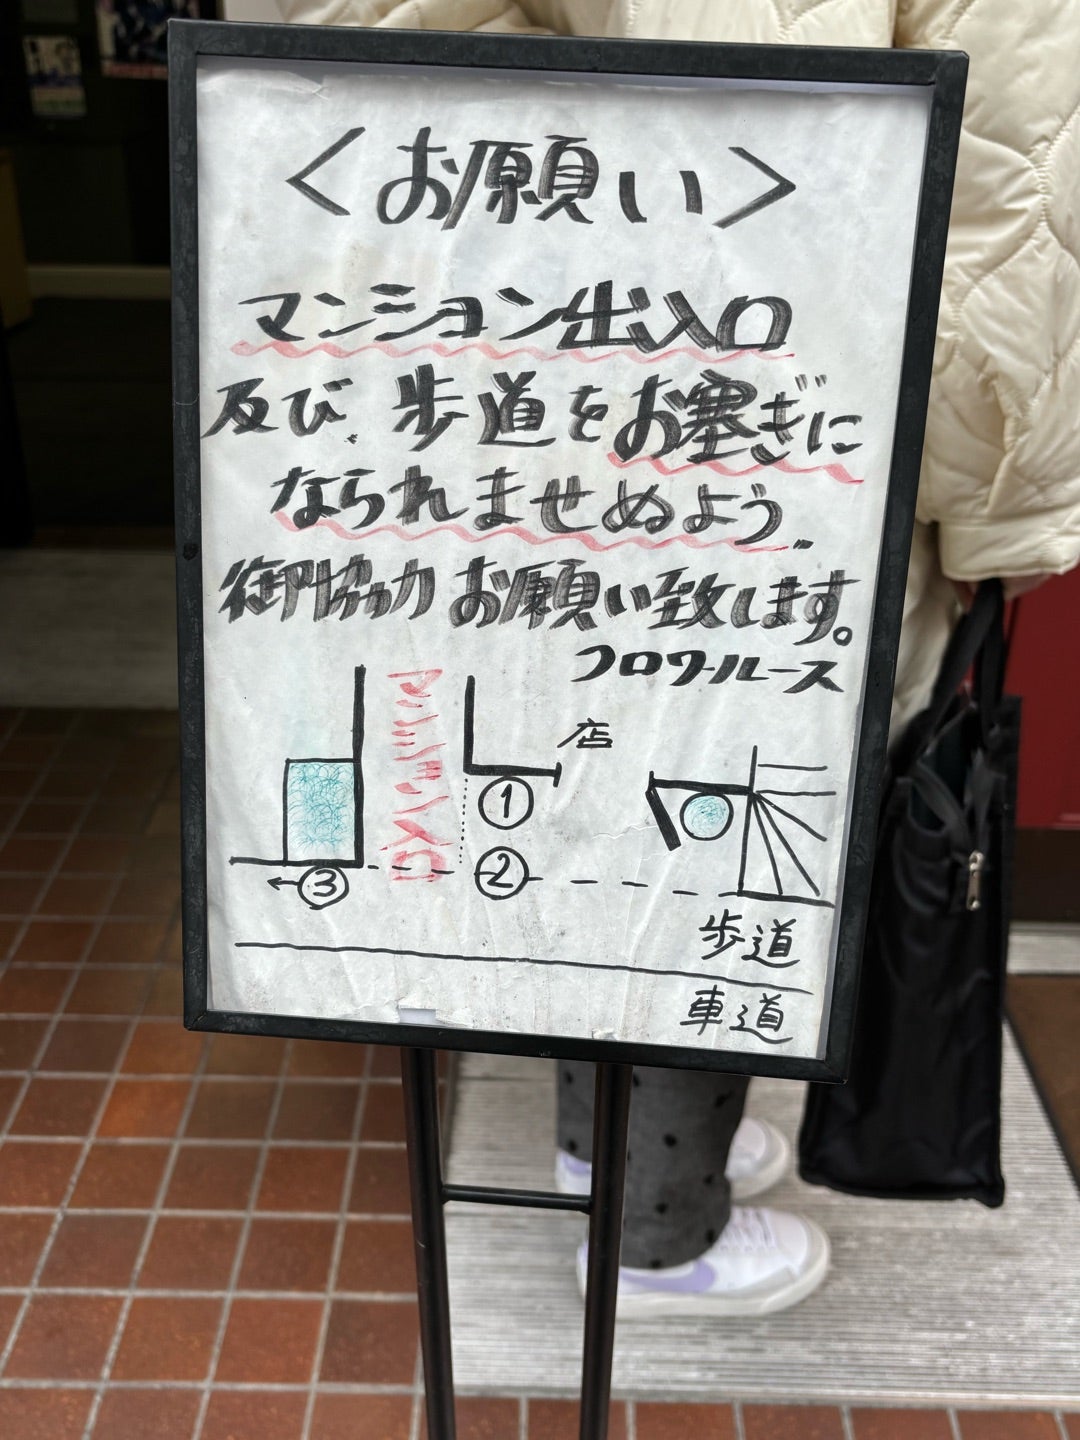 <お願い>
マンション出入口
及び、歩道をお塞ぎに
なられませぬよう、
御協力お願い致します。
フロワールース
マンション入口
店
①
②
←③
歩道
車道